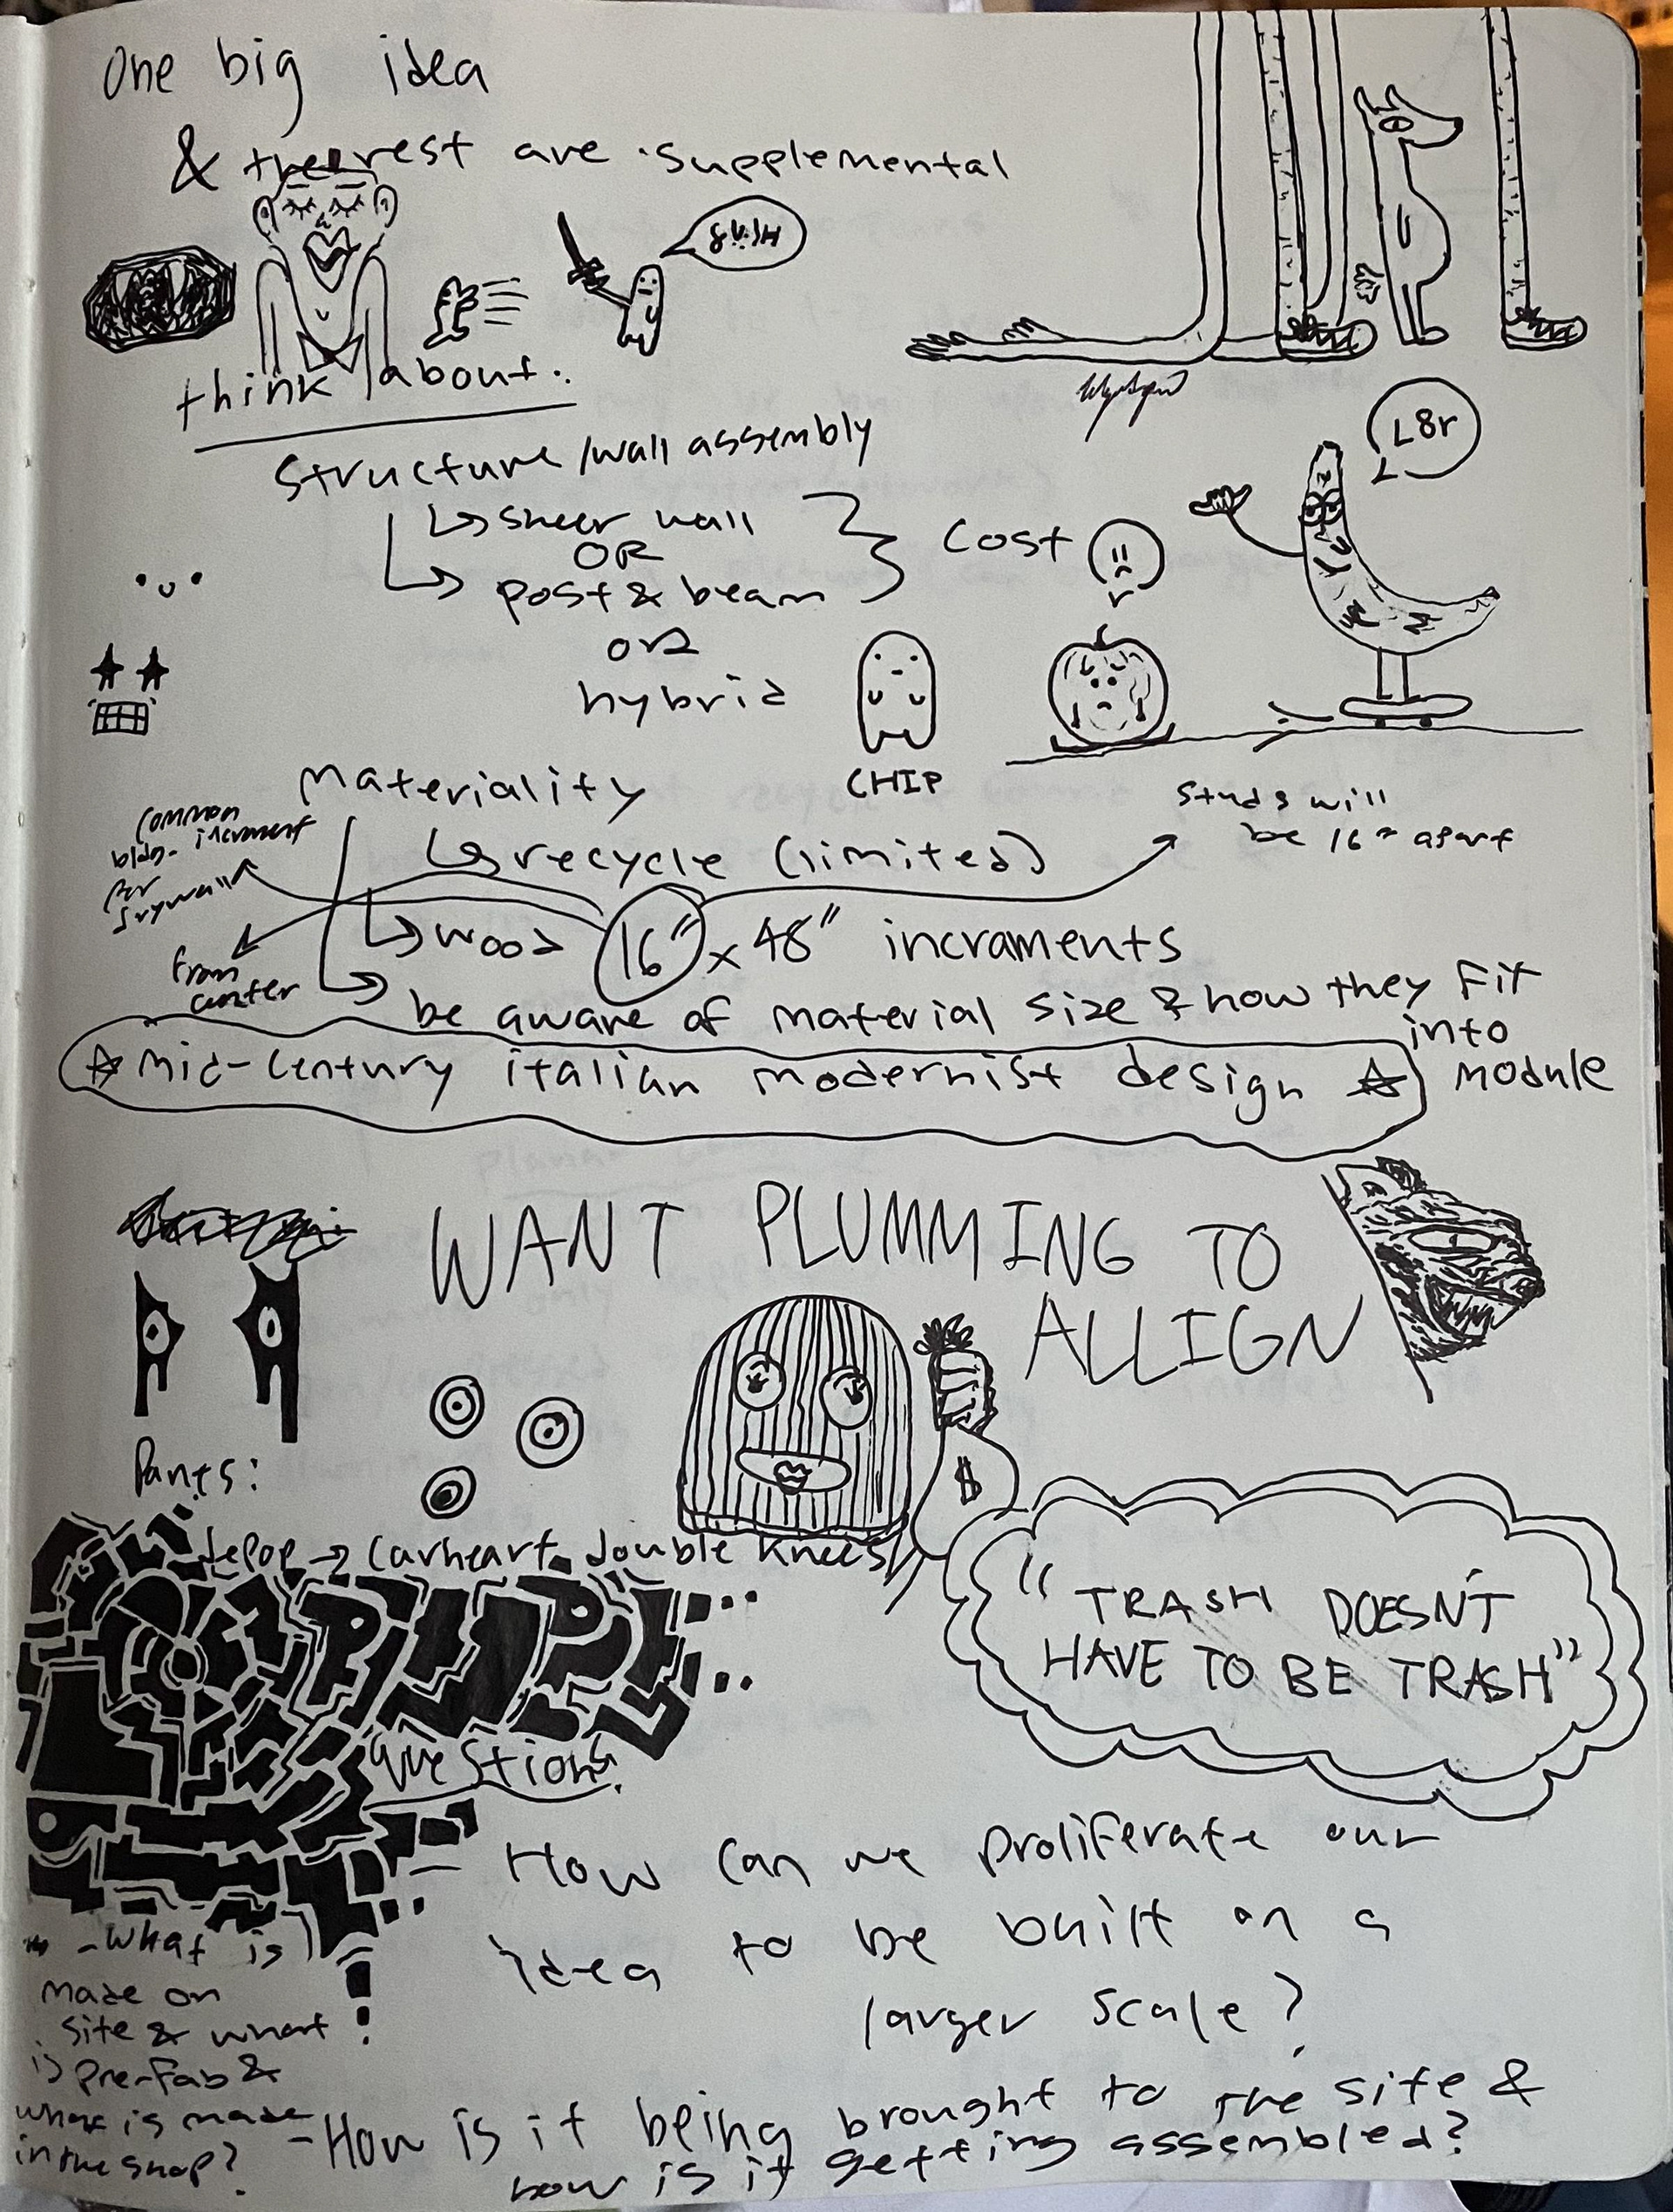 One big idea
& the rest are supplemental
think about:
structure/wall assembly
↳ sheer wall
OR
↳ post & beam
cost
or
hybrid
L8r
CHIP
Materiality
↳ recycle (limited)
studs will
be 16" apart
common
bldg. increment
for
drywall
↳ wood 16" x 48" incraments
from
center
↳ be aware of material size & how they fit
into
module
☆ mid-century italian modernist design ☆
WANT PLUMMING TO
ALLIGN
Pants:
depop → Carheart double knees
$
"TRASH DOESN'T
HAVE TO BE TRASH"
Questions
- How can we proliferate our
idea to be built on a
larger scale?
- what is
made on
site & what
is pre-fab &
what is made
in the shop?
- How is it being brought to the site &
how is it getting assembled?